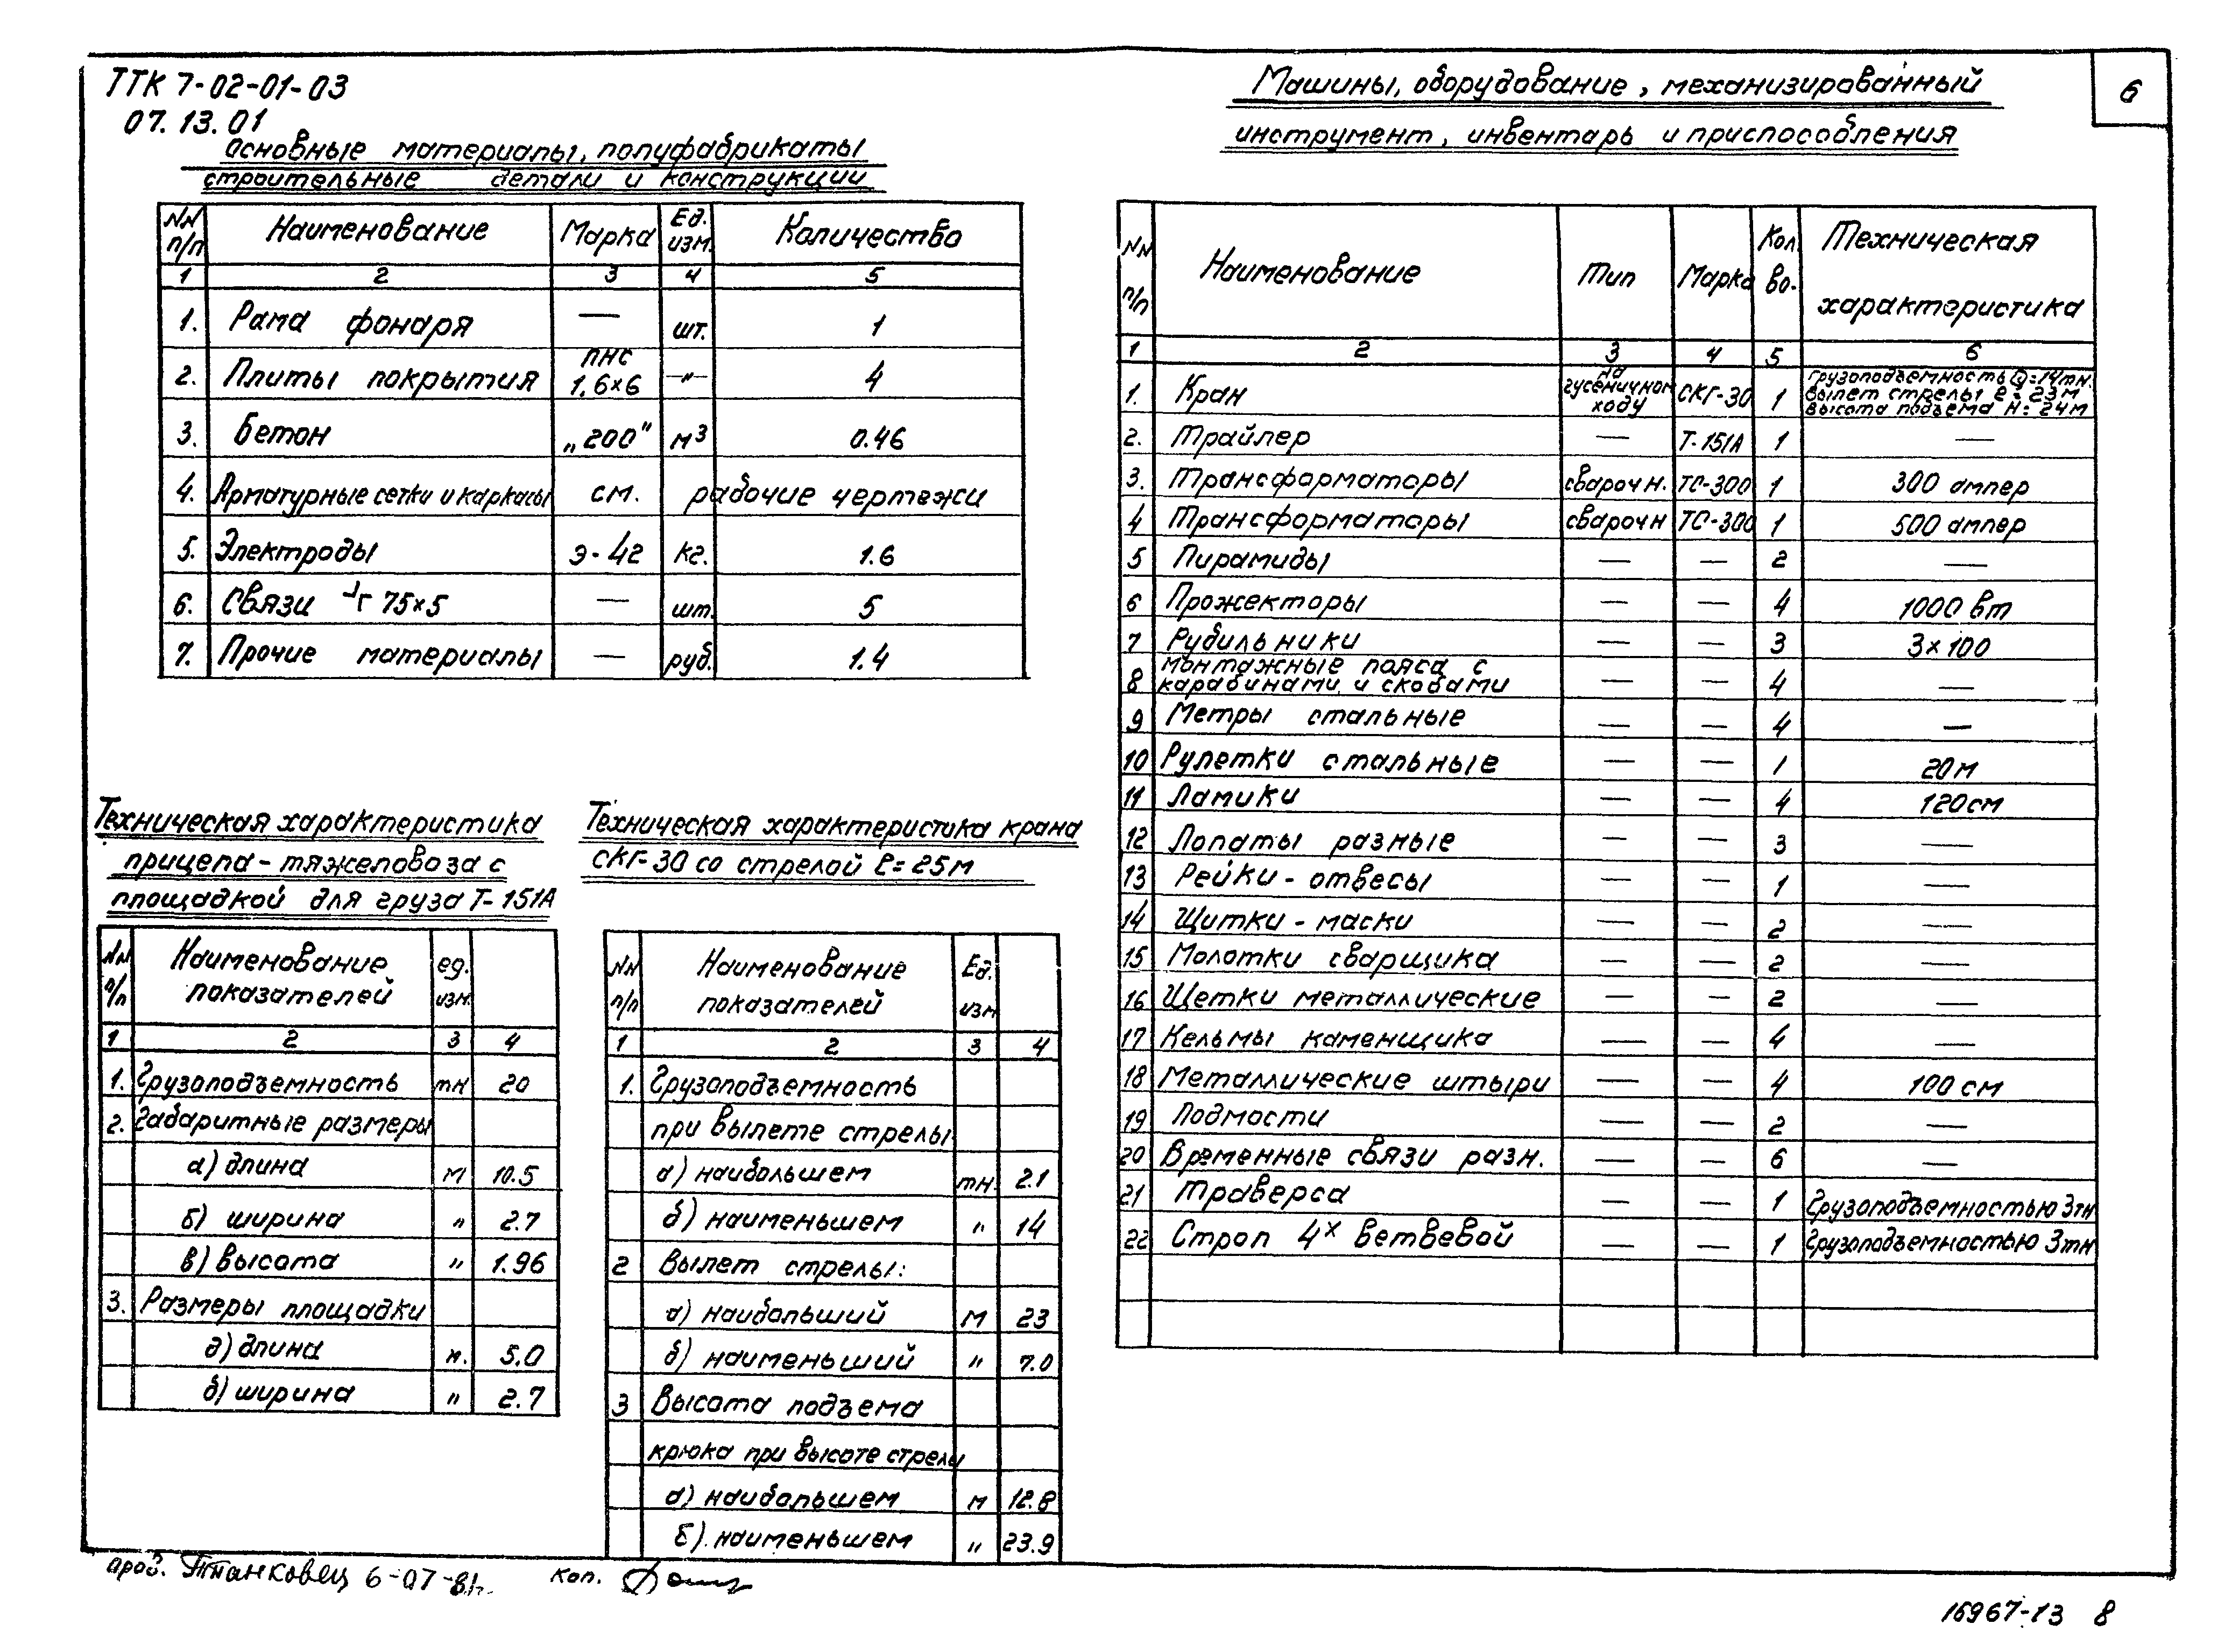 ТТК 7-02-01-03
07.13.01
6
Основные материалы, полуфабрикаты
строительные детали и конструкции
NN п/п Наименование Марка Ед. изм. Количество
1 2 3 4 5
1. Рама фонаря — шт. 1
2. Плиты покрытия ПНС 1.6×6 —"— 4
3. Бетон „200" м³ 0.46
4. Арматурные сетки и каркасы см. рабочие чертежи
5. Электроды Э-42 кг. 1.6
6. Связи ┘Г 75×5 — шт. 5
7. Прочие материалы — руб. 1.4
Техническая характеристика
прицепа-тяжеловоза с
площадкой для груза Т-151А
NN п/п Наименование показателей ед. изм.
1 2 3 4
1. Грузоподъемность тн 20
2. Габаритные размеры
а) длина м 10.5
б) ширина " 2.7
в) высота " 1.96
3. Размеры площадки
а) длина м. 5.0
б) ширина " 2.7
Техническая характеристика крана
СКГ-30 со стрелой ℓ=25м
NN п/п Наименование показателей Ед. изм
1 2 3 4
1. Грузоподъемность
при вылете стрелы
а) наибольшем тн. 2.1
б) наименьшем " 14
2 Вылет стрелы:
а) наибольший м 23
б) наименьший " 7.0
3 Высота подъема
крюка при высоте стрелы
а) наибольшем м 12.8
б) наименьшем " 23.9
Машины, оборудование, механизированный
инструмент, инвентарь и приспособления
NN п/п Наименование Тип Марка Кол. во. Техническая характеристика
1 2 3 4 5 6
1. Кран на гусеничном ходу СКГ-30 1 грузоподъемность Q=14тн. вылет стрелы ℓ=23м высота подъема H=24м
2. Трайлер — Т-151А 1 —
3. Трансформаторы сварочн. ТС-300 1 300 ампер
4 Трансформаторы сварочн ТС-300 1 500 ампер
5 Пирамиды — — 2 —
6 Прожекторы — — 4 1000 вт
7 Рубильники — — 3 3×100
8 Монтажные пояса с карабинами и скобами — — 4 —
9 Метры стальные — — 4 —
10 Рулетки стальные — — 1 20м
11 Ломики — — 4 120см
12 Лопаты разные — — 3 —
13 Рейки-отвесы — — 1 —
14 Щитки-маски — — 2 —
15 Молотки сварщика — — 2 —
16 Щетки металлические — — 2 —
17 Кельмы каменщика — — 4 —
18 Металлические штыри — — 4 100 см
19 Подмости — — 2 —
20 Временные связи разн. — — 6 —
21 Траверса — — 1 Грузоподъемностью 3тн
22 Строп 4х ветвевой — — 1 Грузоподъемностью 3тн
6-07-81г.
коп.
15967-13 8